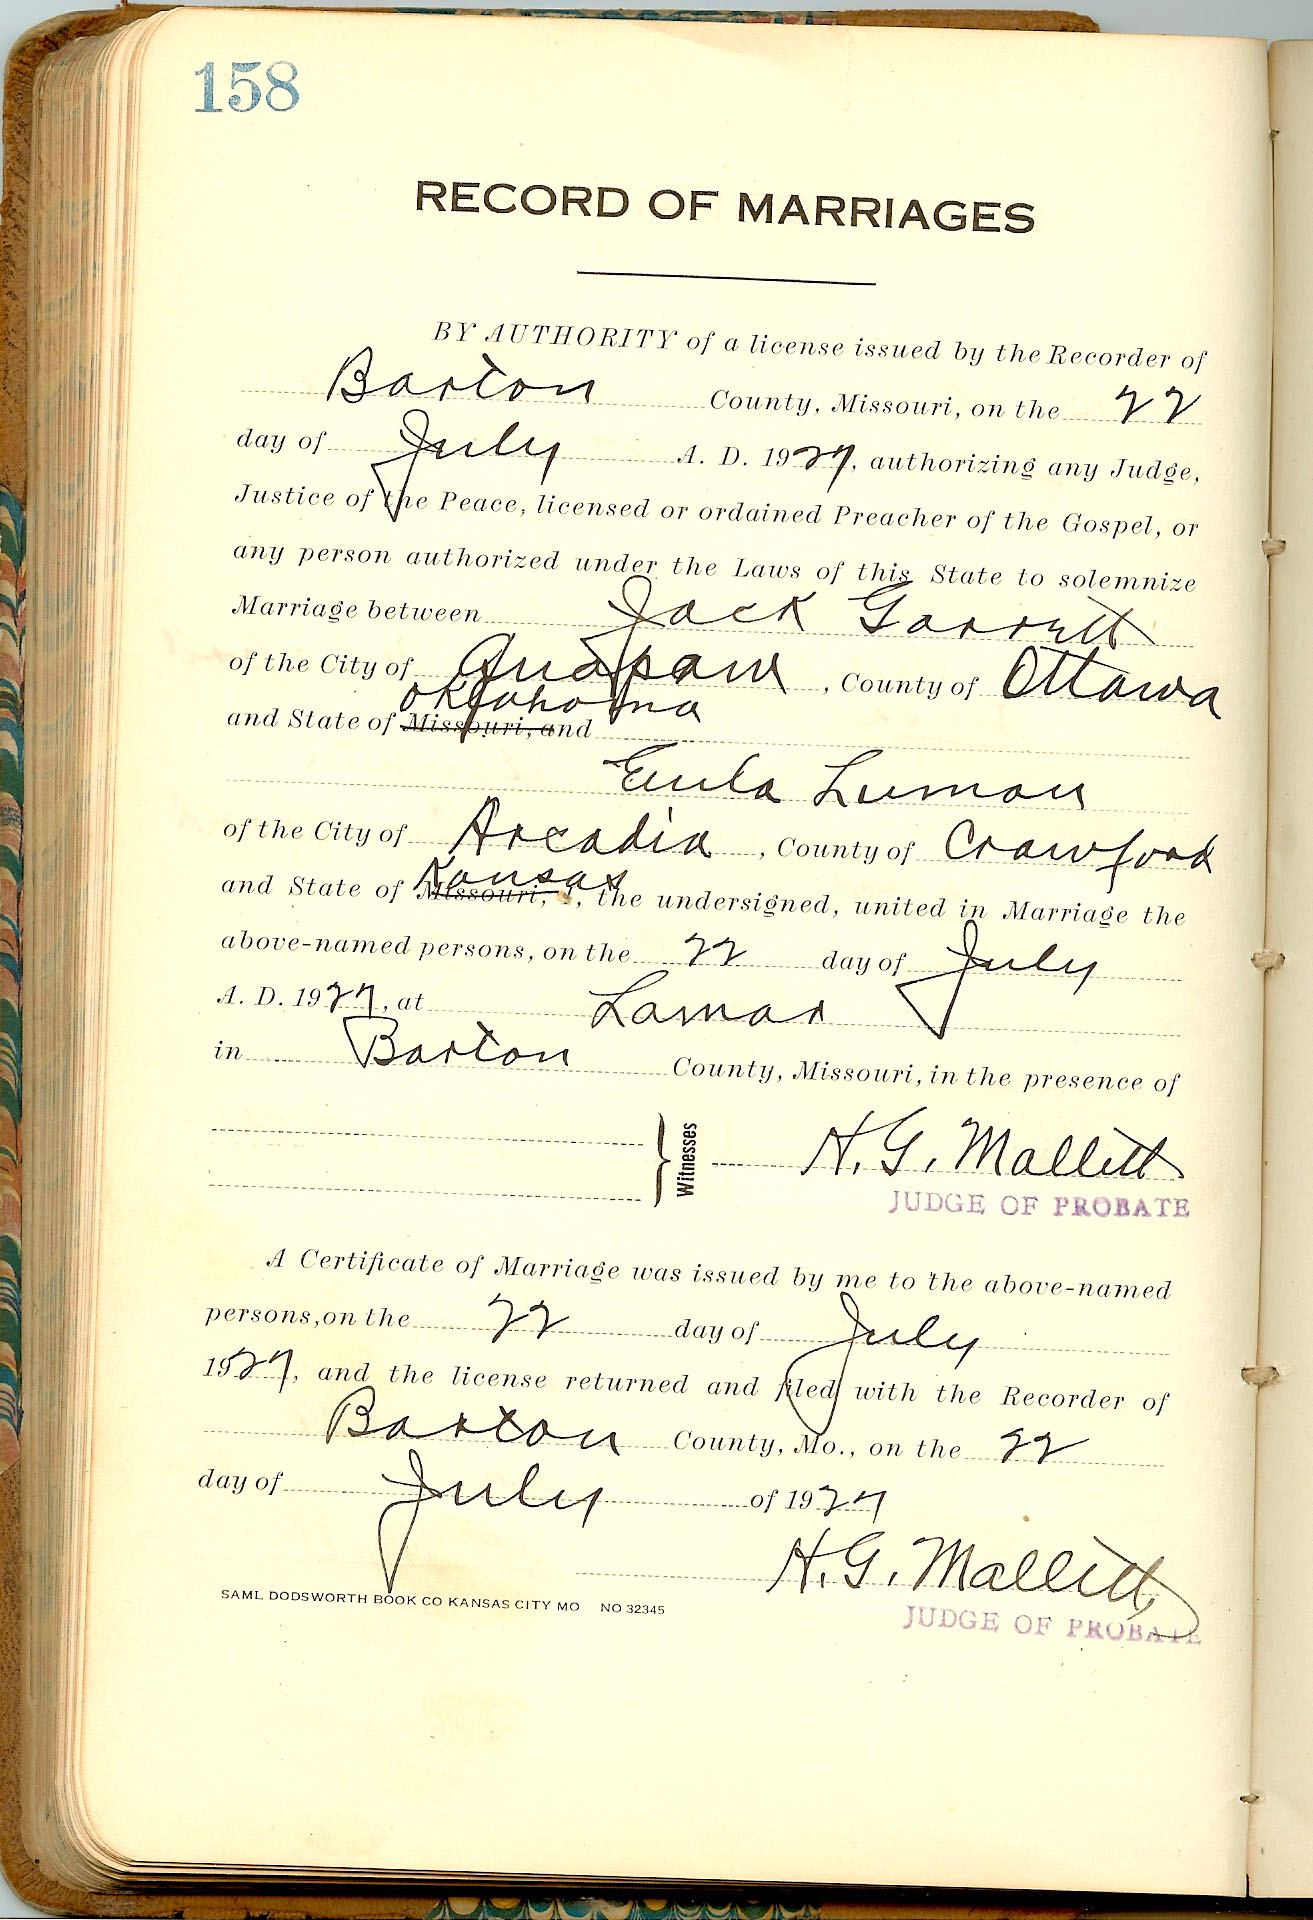 158
RECORD OF MARRIAGES
BY AUTHORITY of a license issued by the Recorder of
Barton County, Missouri, on the 22
day of July A. D. 1927, authorizing any Judge,
Justice of the Peace, licensed or ordained Preacher of the Gospel, or
any person authorized under the Laws of this State to solemnize
Marriage between Jack Garrett
of the City of Quapaw, County of Ottawa
Oklahoma
and State of Missouri, and
Eula Luman
of the City of Arcadia, County of Crawford
Kansas
and State of Missouri, I, the undersigned, united in Marriage the
above-named persons, on the 22 day of July
A. D. 1927, at Lamar
in Barton County, Missouri, in the presence of
Witnesses H. G. Mallett
JUDGE OF PROBATE
A Certificate of Marriage was issued by me to the above-named
persons, on the 22 day of July
1927, and the license returned and filed with the Recorder of
Barton County, Mo., on the 22
day of July of 1927
H. G. Mallett,
SAML DODSWORTH BOOK CO KANSAS CITY MO NO 32345
JUDGE OF PROBATE